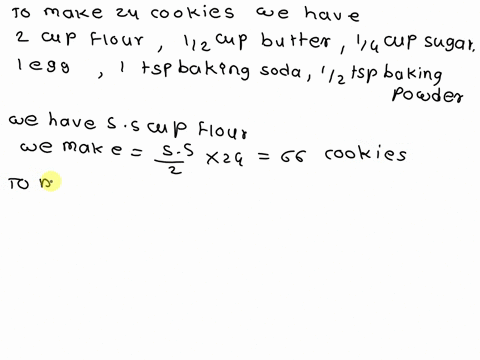 To make 24 cookies we have
2 cup flour, 1/2 cup butter, 1/4 cup sugar,
1 egg, 1 tsp baking soda, 1/2 tsp baking
powder
we have 5.5 cup flour
we make = 5.5/2 × 24 = 66 cookies
To